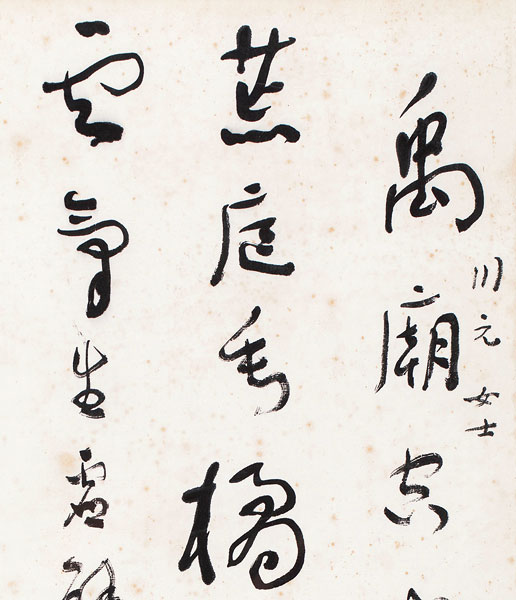 川元女士
禹廟空
荒庭垂橘
雲氣生虛